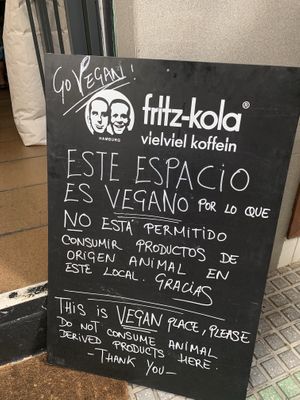 GO VEGAN!
fritz-kola®
HAMBURG
vielviel koffein
ESTE ESPACIO
ES VEGANO POR LO QUE
NO ESTÁ PERMITIDO
CONSUMIR PRODUCTOS DE
ORIGEN ANIMAL EN
ESTE LOCAL. GRACIAS
THIS IS VEGAN PLACE, PLEASE
DO NOT CONSUME ANIMAL
DERIVED PRODUCTS HERE.
-THANK YOU-